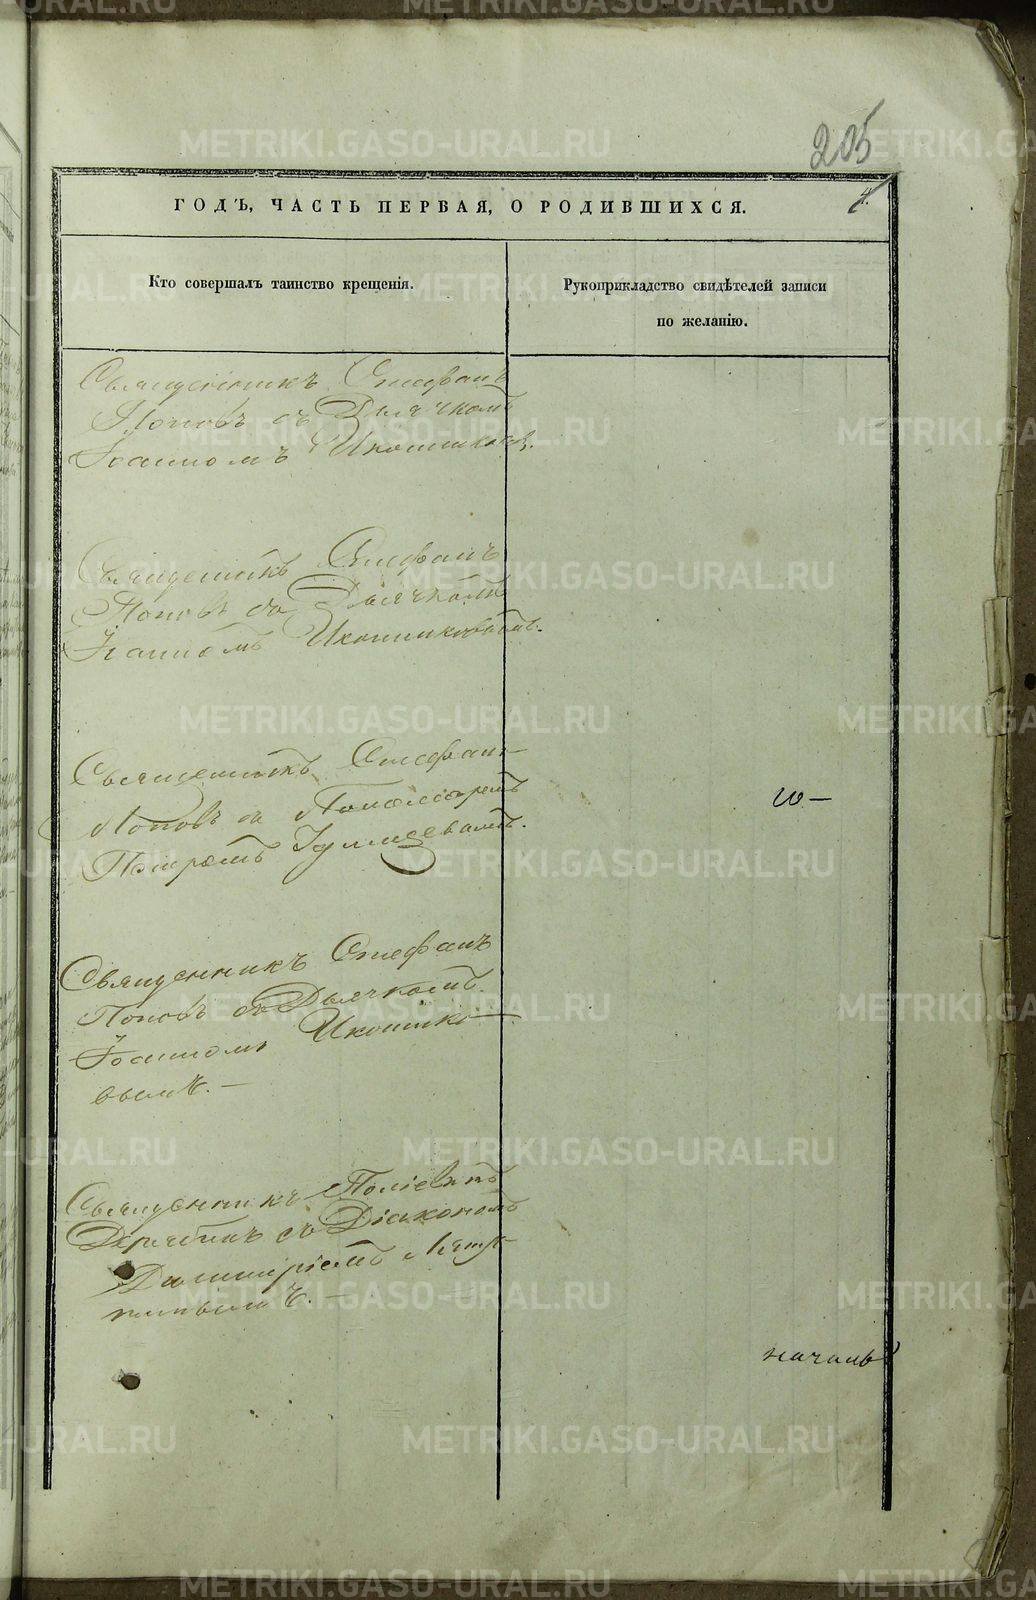 205
4.
ГОДЪ, ЧАСТЬ ПЕРВАЯ, О РОДИВШИХСЯ.
Кто совершалъ таинство крещенія.
Рукоприкладство свидѣтелей записи
по желанію.
Священникъ Стефанъ
Поповъ съ Дьячкомъ
Іоанномъ Иконниковы.
Священникъ Стефанъ
Поповъ съ Дьячкомъ
Іоанномъ Иконниковымъ.
Священникъ Стефанъ
Поповъ съ Пономаремъ
Петромъ
Священникъ Стефанъ
Поповъ съ Дьячкомъ
Іоанномъ Иконнико-
вымъ. —
Священникъ Поліевктъ
съ Діакономъ
Димитріемъ
METRIKI.GASO-URAL.RU